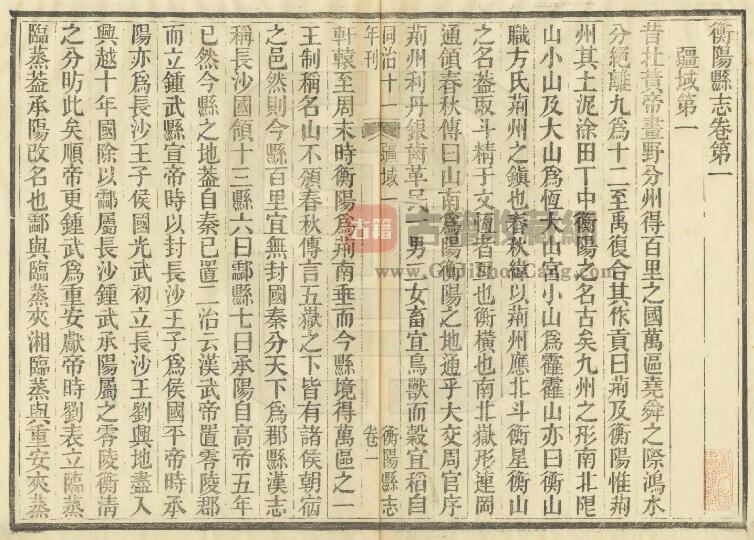 衡陽縣志卷第一
疆域第一
昔在黃帝畫野分州得百里之國萬區堯舜之際鴻水
分絕離九爲十二至禹復合其作貢曰荊及衡陽惟荊
州其土泥涂田下中衡陽之名古矣九州之形南北隄
山小山及大山爲恆大山宮小山爲霍霍山亦曰衡山
職方氏荊州之鎮也春秋緯以荊州應北斗衡星衡山
之名葢取斗精于文恆者亙也衡橫也南北嶽形連岡
通領春秋傳曰山南爲陽衡陽之地通乎大交周官序
荊州利丹銀齒革民一男二女畜宜鳥獸而穀宜稻自
同治十一年刊
疆域一
卷一
衡陽縣志
軒轅至周末時衡陽爲荊南垂而今縣境得萬區之一
王制稱名山不頒春秋傳言五嶽之下皆有諸侯朝宿
之邑然則今縣百里宜無封國秦分天下爲郡縣漢志
稱長沙國領十三縣六曰酃縣七曰承陽自高帝五年
已然今縣之地葢自秦已置二治云漢武帝置零陵郡
而立鍾武縣宣帝時以封長沙王子爲侯國平帝時承
陽亦爲長沙王子侯國光武初立長沙王劉興地盡入
興越十年國除以酃屬長沙鍾武承陽屬之零陵衡清
之分昉此矣順帝更鍾武爲重安獻帝時劉表立臨蒸
臨蒸葢承陽改名也酃與臨蒸夾湘臨蒸與重安夾蒸
古籍
古籍收藏網
www.GuJiShouCang.com